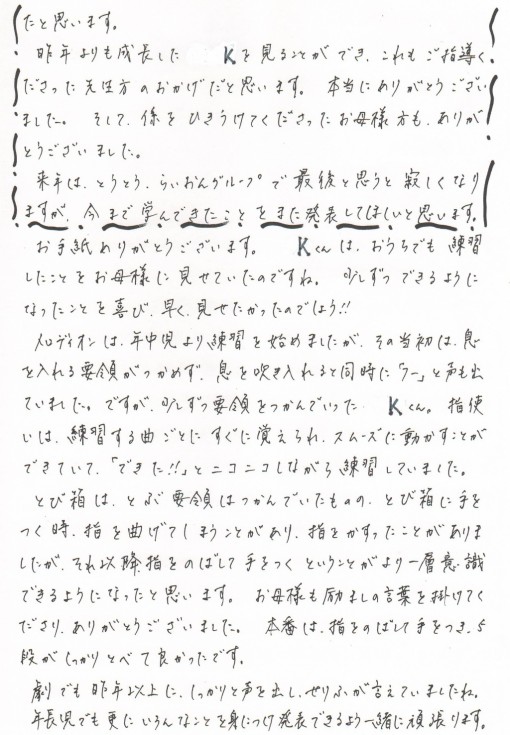 たと思います。
昨年よりも成長した Kを見ることができ、これもご指導く
ださった先生方のおかげだと思います。 本当にありがとうござい
ました。 そして、係をひきうけてくださったお母様方も、ありが
とうございました。
来年は、とうとう、らいおんグループで最後と思うと寂しくなり
ますが、今まで学んできたことをまた発表してほしいと思います。
お手紙ありがとうございます。 Kくんは、おうちでも練習
したことをお母様に見せていたのですね。 少しずつできるように
なったことを喜び、早く見せたかったのでしょう!!
メロディオンは、年中児より練習を始めましたが、その当初は、息
を入れる要領がつかめず、息を吹き入れると同時に「ウー」と声も出
ていました。ですが、少しずつ要領をつかんでいった Kくん。指使
いは、練習する曲ごとにすぐに覚えられ、スムーズに動かすことが
できていて、「できた!!」とニコニコしながら練習していました。
とび箱は、とぶ要領はつかんでいたものの、とび箱に手を
つく時、指を曲げてしまうことがあり、指をかすったことがありま
したが、それ以降指をのばして手をつくということがより一層意識
できるようになったと思います。 お母様も励ましの言葉を掛けてく
ださり、ありがとうございました。 本番は、指をのばして手をつき、5
段がしっかりとべて良かったです。
劇でも昨年以上に、しっかりと声を出し、せりふが言えていましたね。
年長児でも更にいろんなことを身につけ発表できるよう一緒に頑張ります。